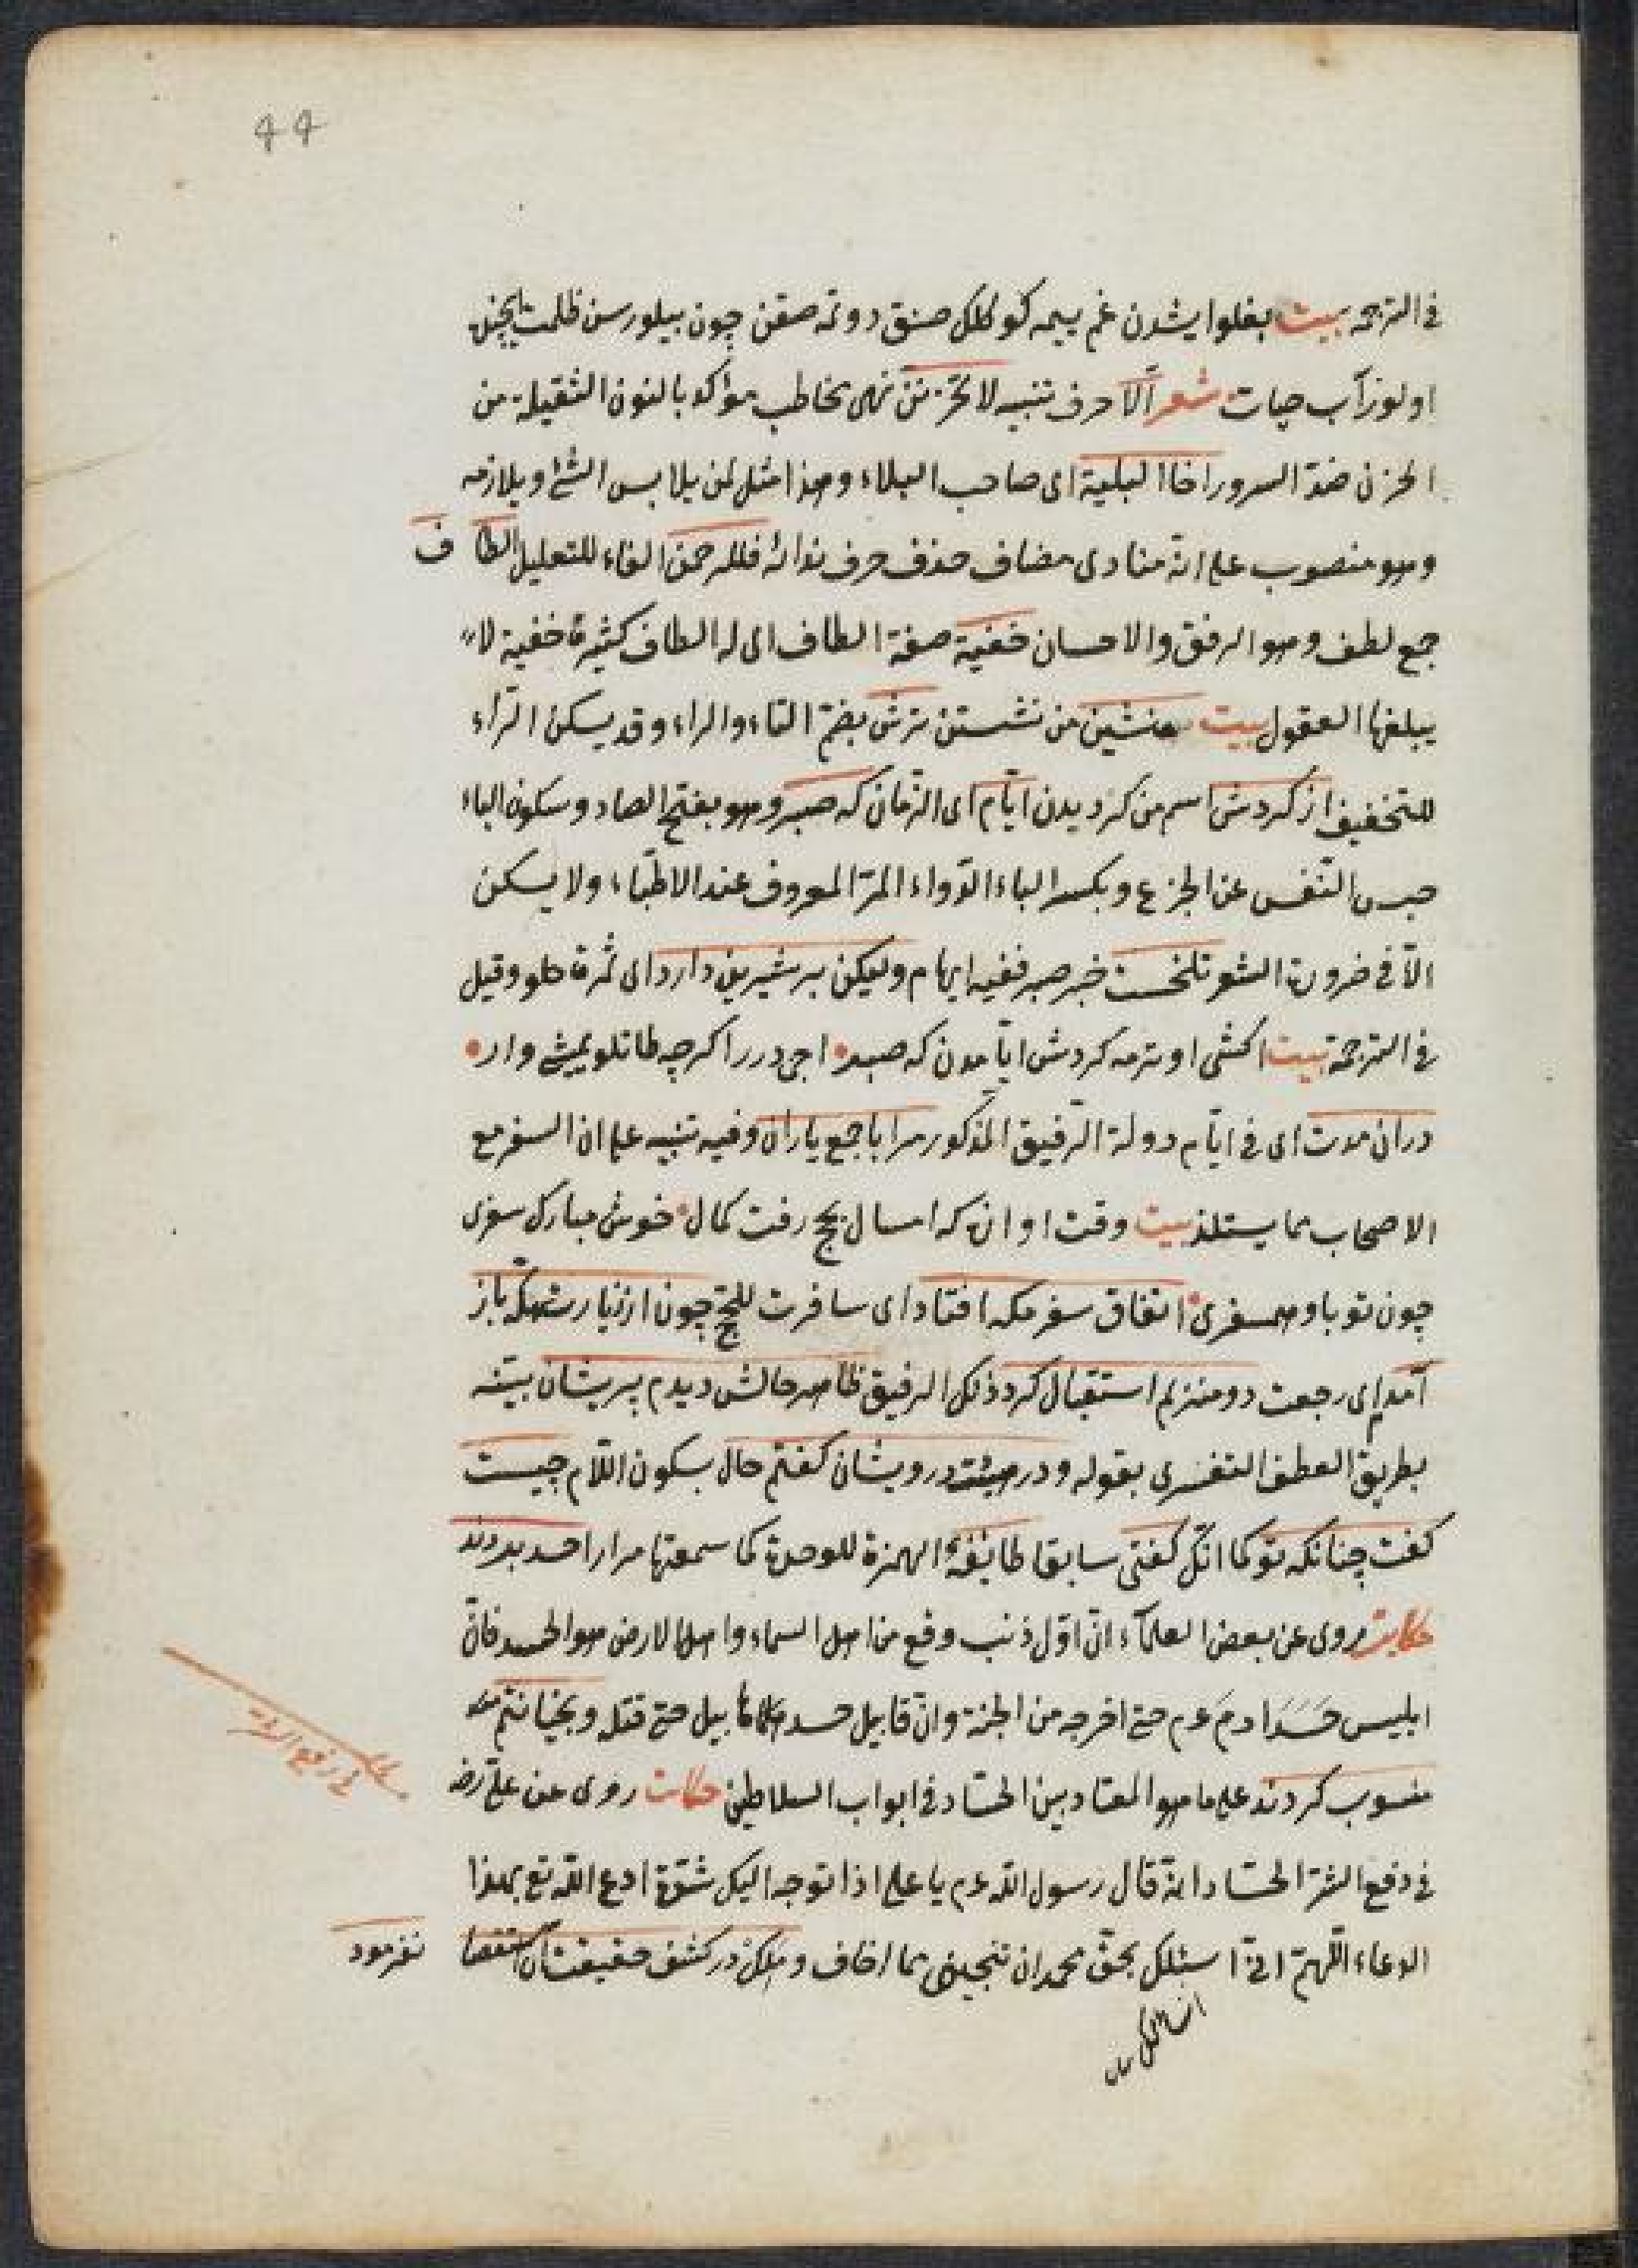 44
فى الترجمة بيت بغلو ايشدن غم ييمه كوكلك صنق دوتمه صقن چون بيلورسن ظلمت ايچنده
اولور آب حيات شعر ألا حرف تنبيه لا تحزننّ نهى مخاطب مؤكد بالنون الثقيلة من
الحزن ضدّ السرور اخا البلية اى صاحب البلاء وهذا مثل لمن يلابس الشئ ويلازمه
وهو منصوب على انه منادى مضاف حذف حرف ندائه فللرحمن الفاء للتعليل الطاف
جمع لطف وهو الرفق والاحسان خفية صفة الطاف اى له الطاف كثيرة خفية لا
يبلغها العقول بيت منشين من نشستن ترش بضم التاء والراء وقد يسكن الرّاء
للتخفيف از كردش اسم من كرديدن ايّام اى الزمان كه صبر وهو بفتح الصاد وسكون الباء
حبس النفس عن الجزع وبكسر الباء الدّواء المرّ المعروف عند الاطبّاء ولا يسكن
الّا فى ضرورة الشعر تلخست خبر صبر ففيه ايهام وليكن بر شيرين دارد اى ثمرة حلو وقيل
فى الترجمة بيت اكشى اوترمه كردش ايّامدن كه صبر اجى در اكرچه طاتلو يمشى وار
دران مدت اى فى ايّام دولة الرّفيق المذكور مرا با جمع ياران وفيه تنبيه على ان السفر مع
الاصحاب مما يستلذ بيت وقت او ان كه امسال بحج رفت كمال خوش مبارك سفرى
چون تو باو همسفرى اتفاق سفر مكه افتاد اى سافرت للحج چون از زيارت مكّه باز
آمدم اى رجعت دو منزلم استقبال كرد ذلك الرفيق ظاهر حالش ديدم پريشان بيّنه
بطريق العطف التفسيرى بقوله ودر هيئت درويشان كفتم حال بسكون اللّام چيست
كفت چنانكه تو كما انك كفتى سابقا طايفهٔ الهمزة للوحدة كما سمعتها مرارا حسد بردند
حكايت روى عن بعض العلمآء انّ اوّل ذنب وقع من اهل السماء واهل الارض هو الحسد فانّ
ابليس حَسَدَ ادمَ عم حتى اخرجه من الجنة وانّ قابيل حسد هابيل حتى قتله وبخيانتم
منسوب كردند على ما هو المعتاد بين الحسّاد فى ابواب السلاطين حكايت روى عن علىّ رضه
فى دفع الشر الحسّاد انه قال رسول اللّه عم يا على اذا توجه اليك شدّة ادع اللّه تع بهذا
الدعاء اللّهمّ انّى اسئلك بحقّ محمد ان تنجينى مما اخاف وملك در كشف حقيقت آن استقصا نفرمود